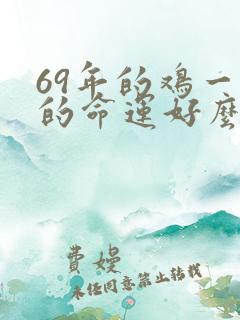 69年的鸡一
的命运好麽
费嫚
未经同意禁止转载